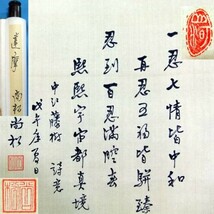 一忍七情皆中和
再忍五福皆駢臻
忍到百忍滿腔春
熙熙宇宙都真境
中江藤樹 詩意
戊午年 日
尚松
達摩
尚松